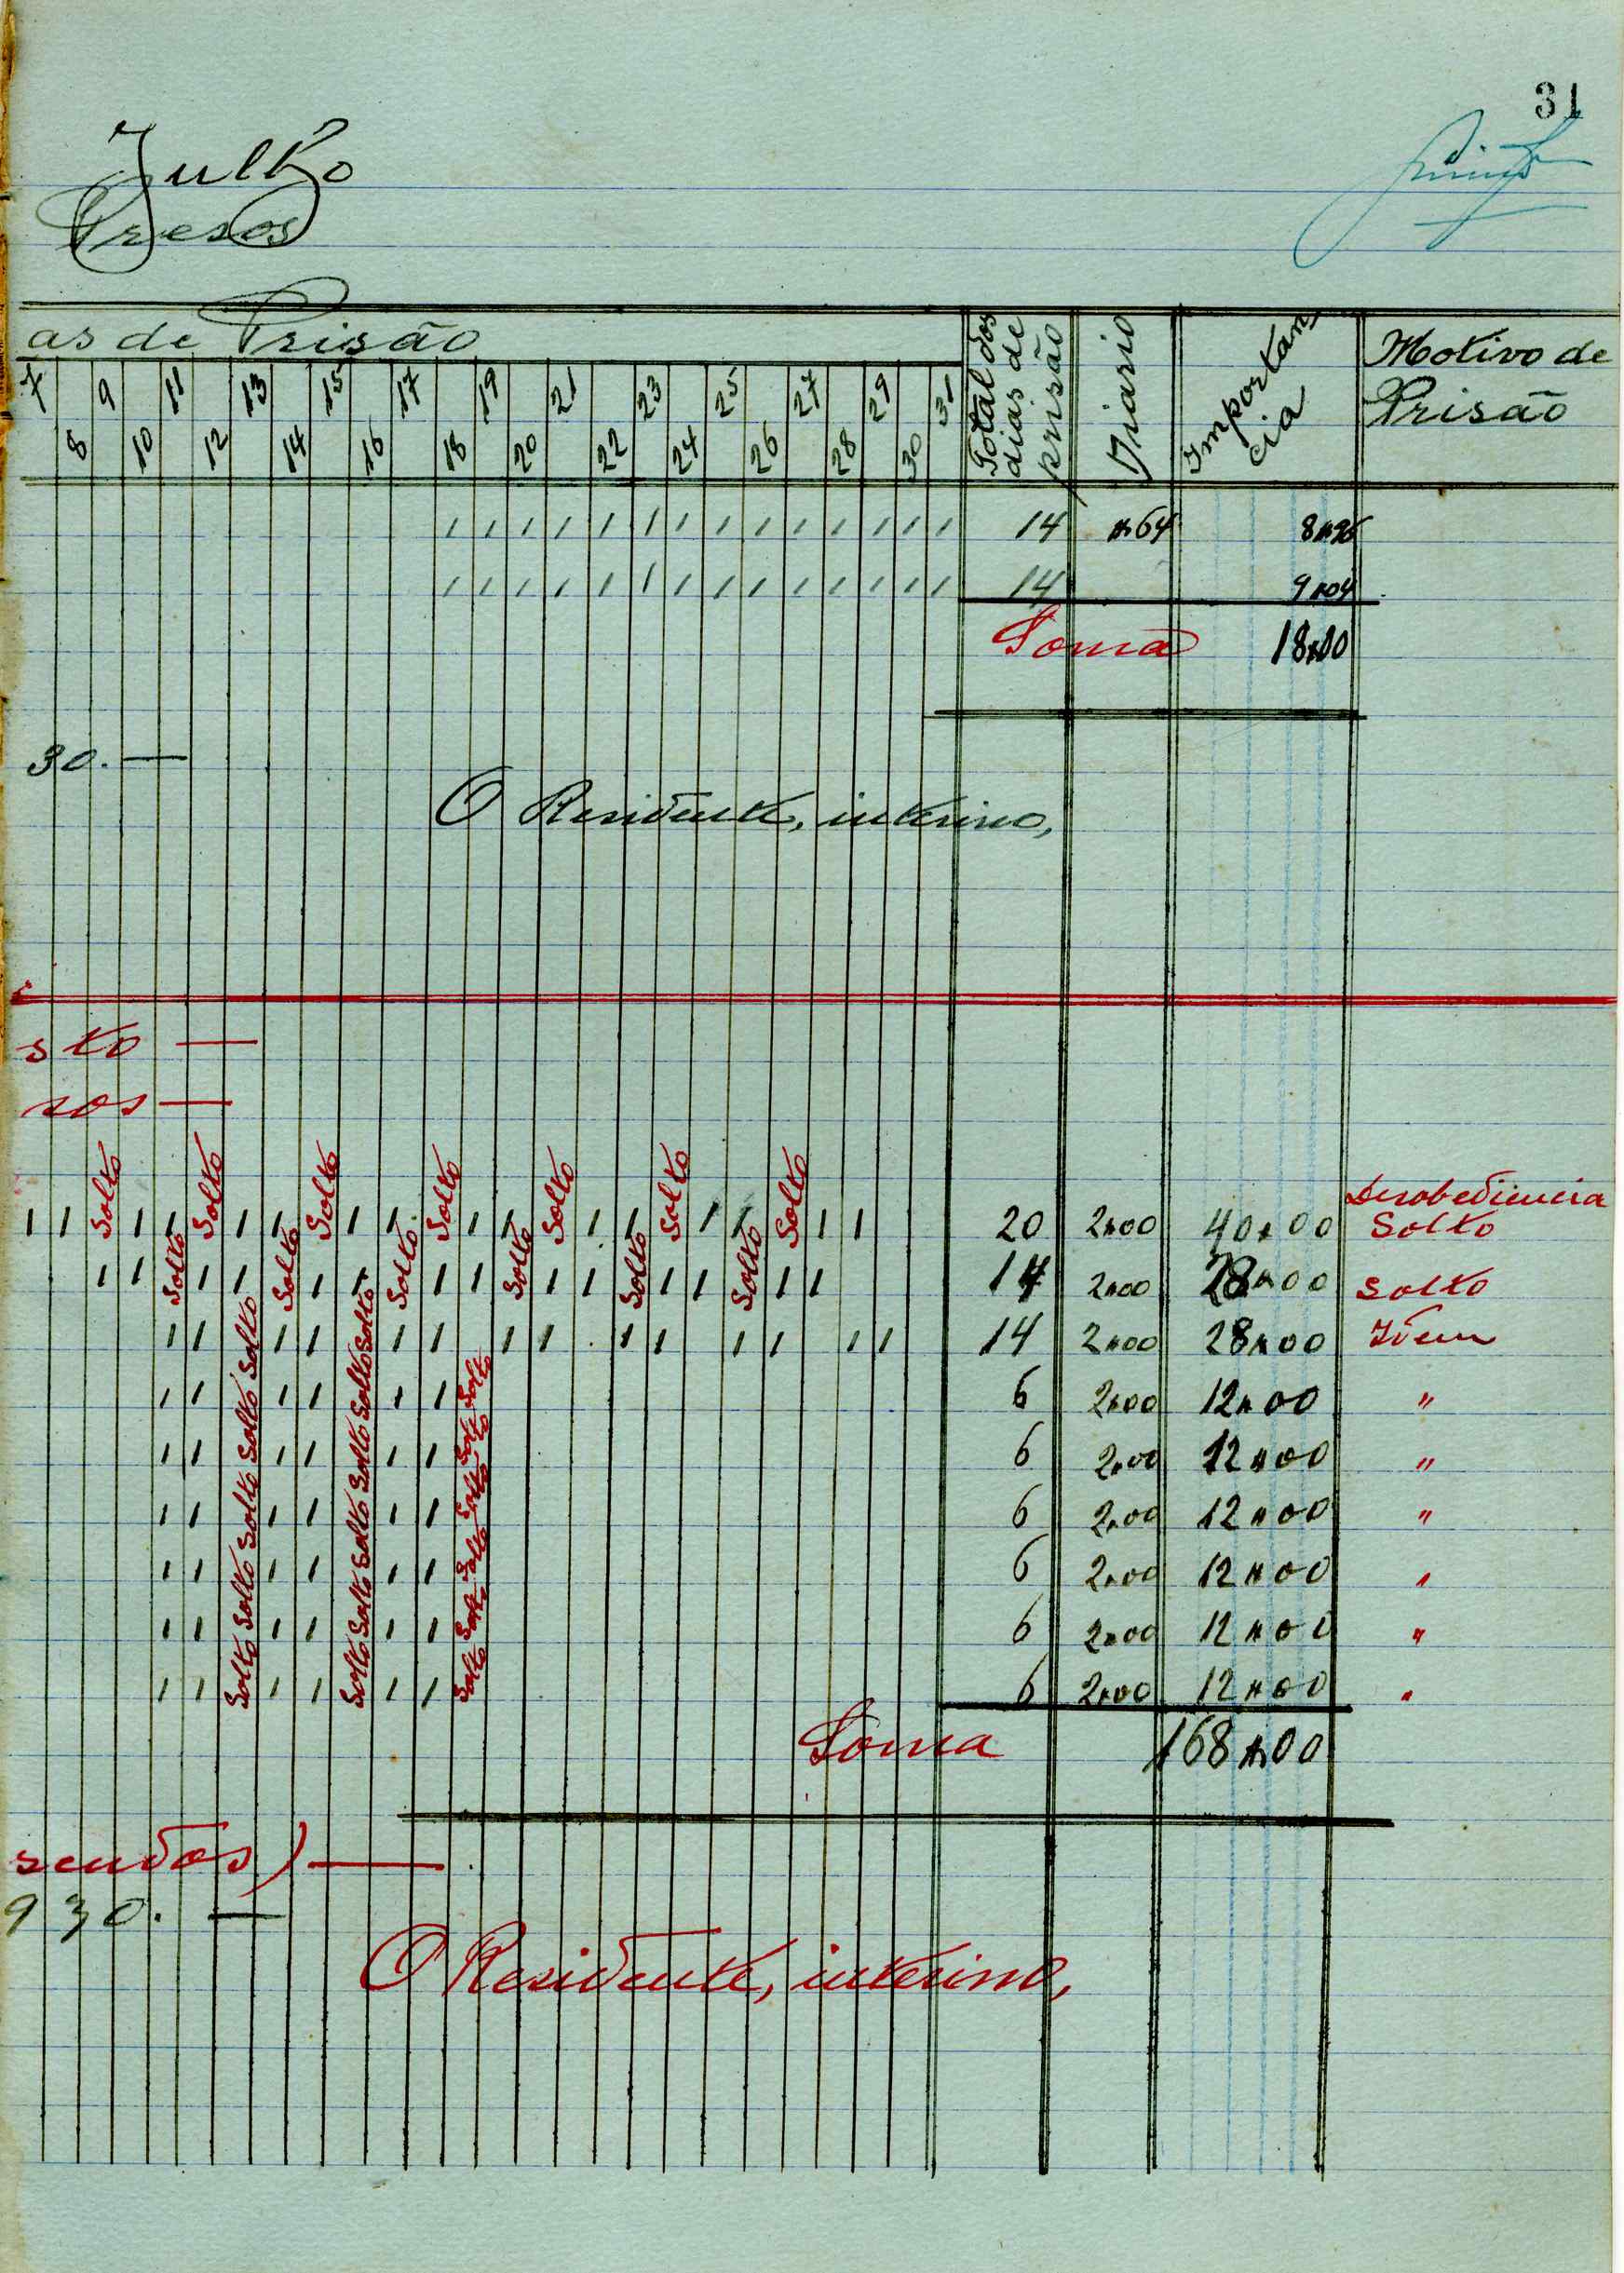 31
Julho
Presos
as de Prisão
Total dos dias de prisão
Diario
Importancia
Motivo de
Prisão
7 9 11 13 15 17 19 21 23 25 27 29 31
8 10 12 14 16 18 20 22 24 26 28 30
1 1 1 1 1 1 1 1 1 1 1 1 1 1 14 $64 8$96
1 1 1 1 1 1 1 1 1 1 1 1 1 1 14 9$04
Soma 18$00
30. —
O Residente, interino,
sto —
sos —
Desobediencia
1 1 Solto 1 1 Solto 1 1 Solto 1 1 Solto 1 1 Solto 1 1 Solto 1 1 Solto 1 1 20 2$00 40$00 Solto
1 1 Solto 1 1 Solto 1 1 Solto 1 1 Solto 1 1 Solto 1 1 Solto 1 1 14 2$00 28$00 Solto
1 1 Solto 1 1 Solto 1 1 1 1 1 1 1 1 1 1 14 2$00 28$00 Idem
1 1 Solto 1 1 Solto 1 1 Solto 6 2$00 12$00 "
1 1 Solto 1 1 Solto 1 1 Solto 6 2$00 12$00 "
1 1 Solto 1 1 Solto 1 1 Solto 6 2$00 12$00 "
1 1 Solto 1 1 Solto 1 1 Solto 6 2$00 12$00 "
1 1 Solto 1 1 Solto 1 1 Solto 6 2$00 12$00 "
1 1 Solto 1 1 Solto 1 1 Solto 6 2$00 12$00 "
Soma 168$00
sendos) —
930. —
O Residente, interino,